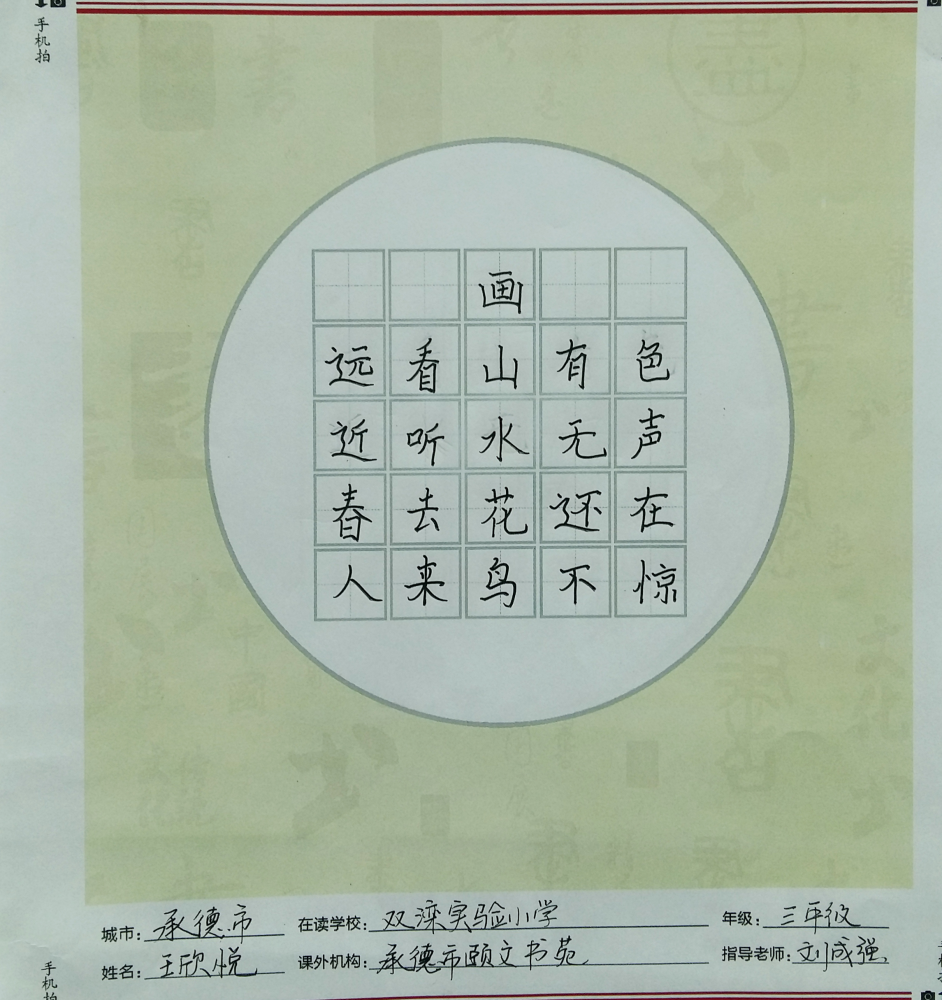 手机拍
画
远看山有色
近听水无声
春去花还在
人来鸟不惊
城市: 承德市 在读学校: 双滦实验小学 年级: 三年级
姓名: 王欣悦 课外机构: 承德市颐文书苑 指导老师: 刘成强
手机拍